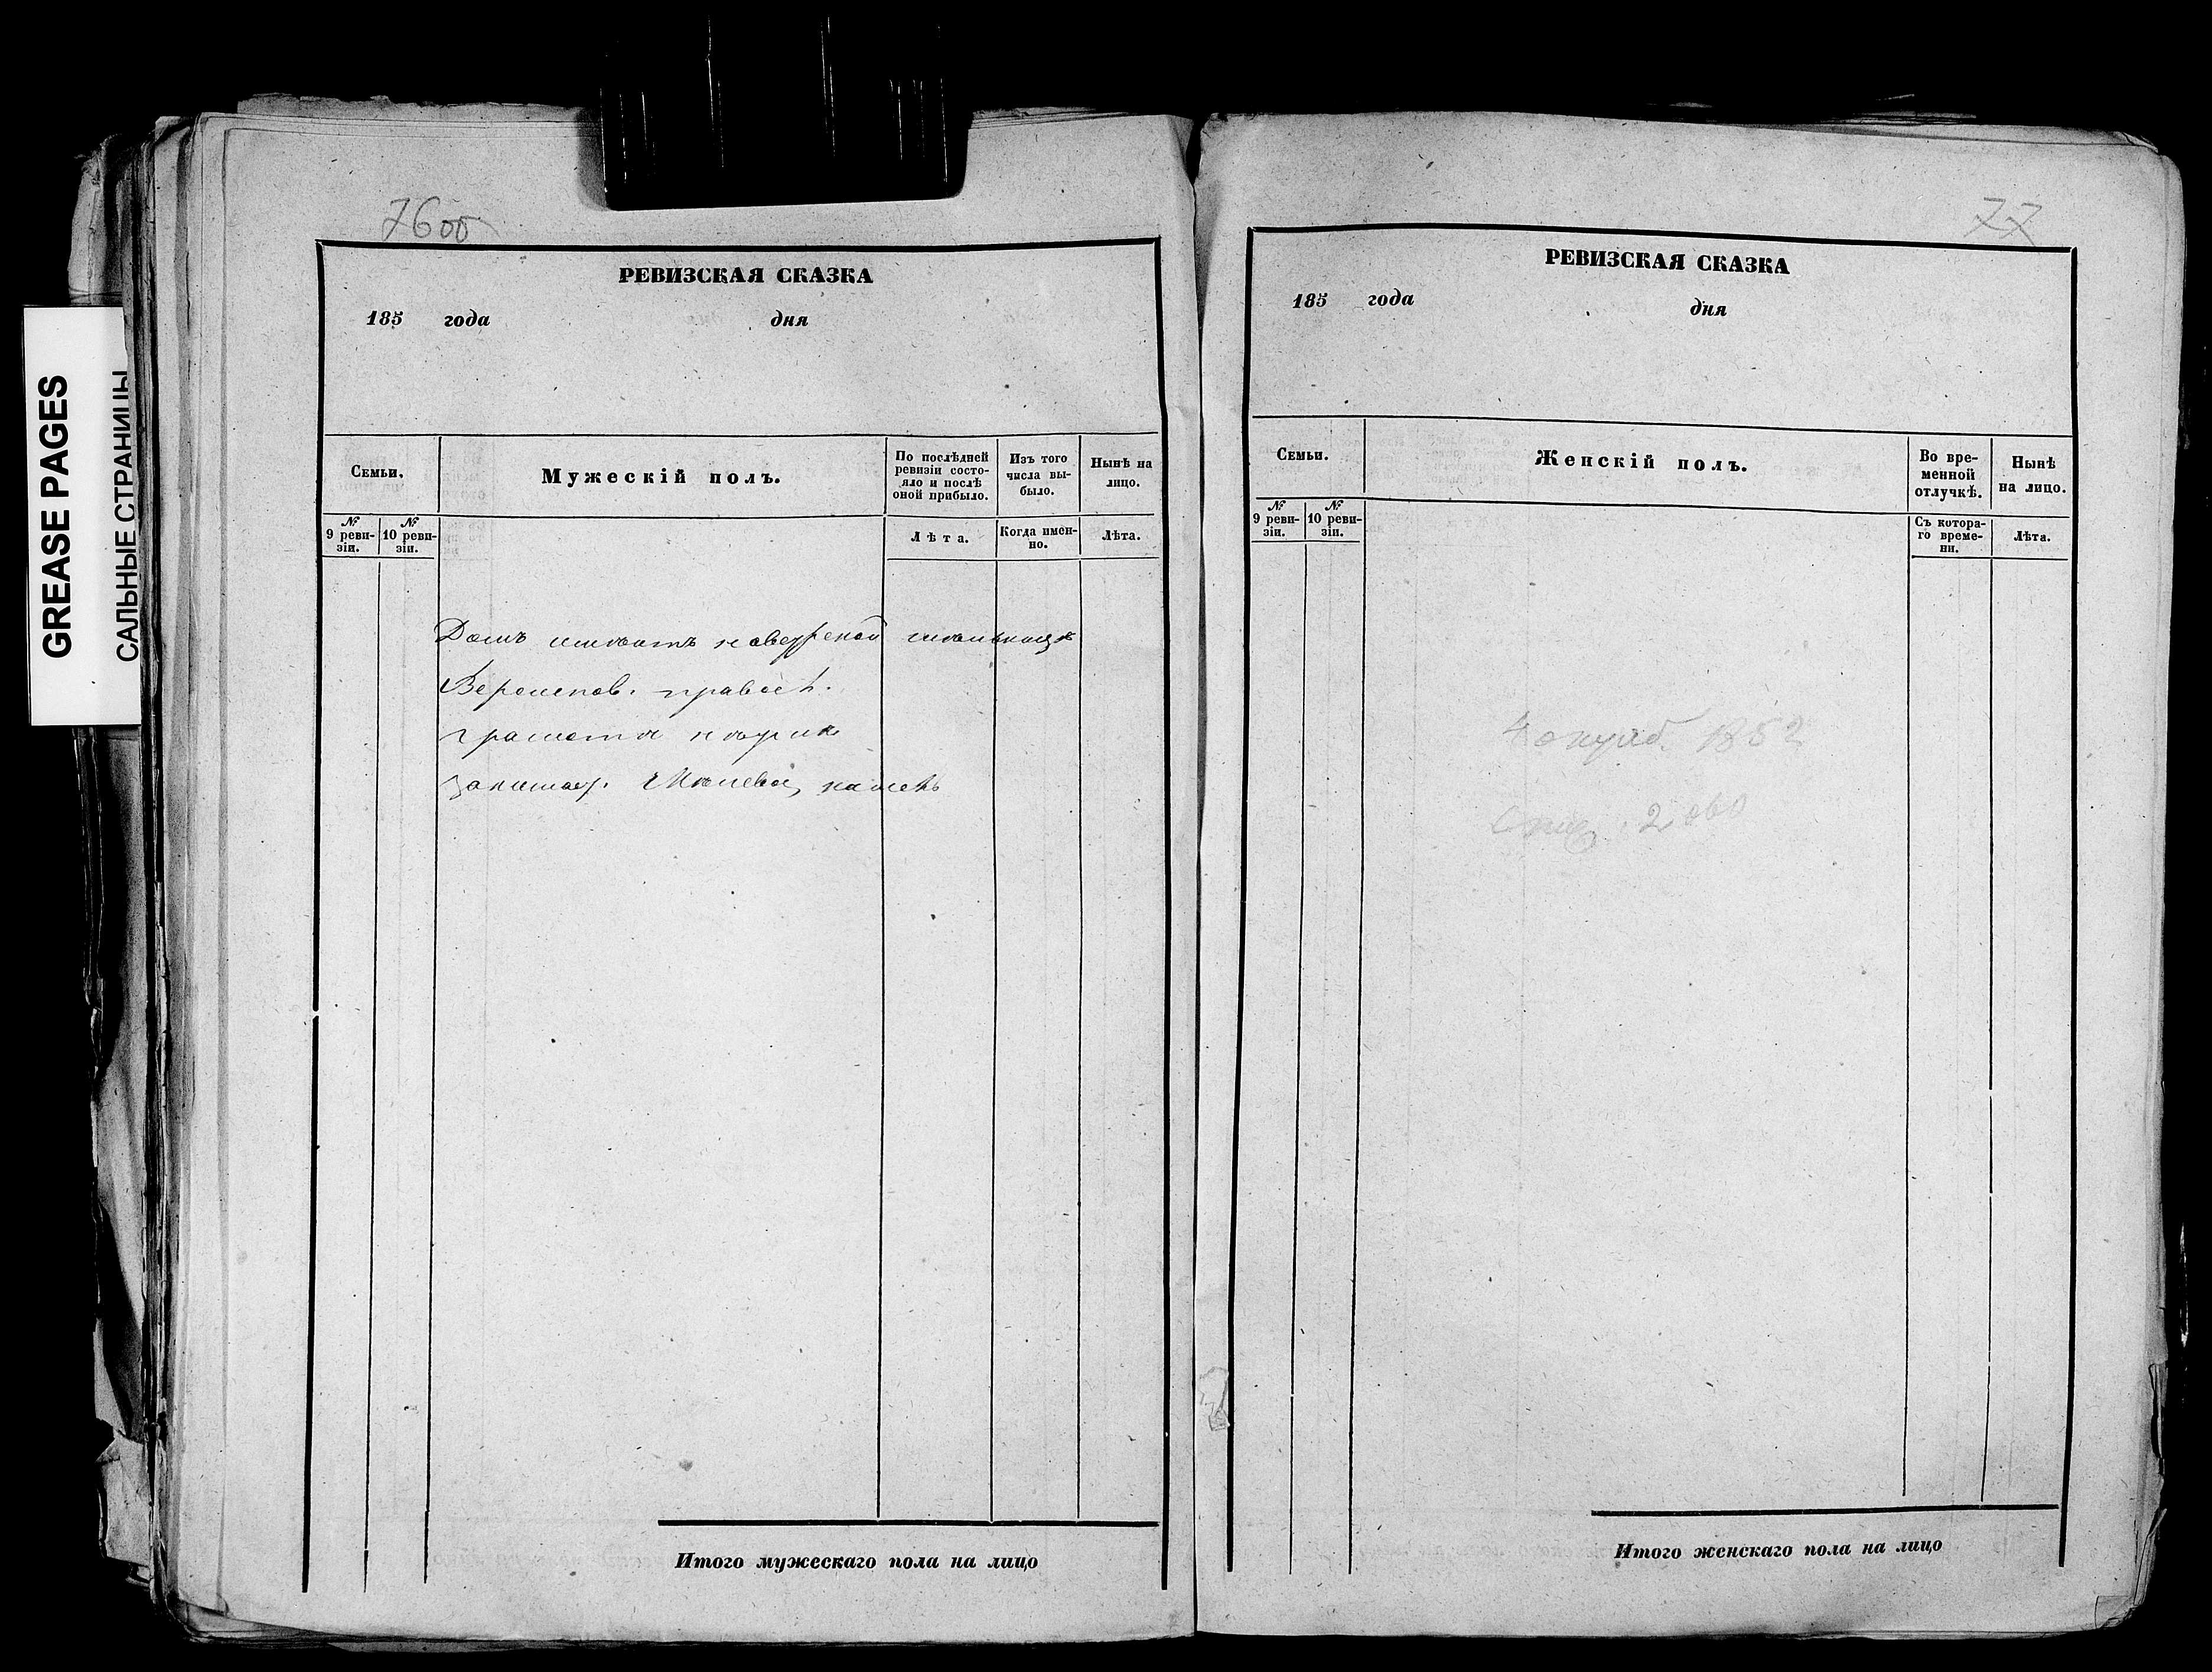 GREASE PAGES
САЛЬНЫЕ СТРАНИЦЫ
76об
РЕВИЗСКАЯ СКАЗКА
185 года дня
Семьи.
Мужескій полъ.
По послѣдней ревизіи состо-
яло и послѣ
оной прибыло.
Изъ того
числа вы-
было.
Нынѣ на
лицо.
№
9 реви-
зіи.
№
10 реви-
зіи.
Лѣта.
Когда имен-
но.
Лѣта.
Домъ
Вероиспов. правос
Итого мужескаго пола на лицо
77
РЕВИЗСКАЯ СКАЗКА
185 года дня
Семьи.
Женскій полъ.
Во вре-
менной
отлучкѣ.
Нынѣ
на лицо.
№
9 реви-
зіи.
№
10 реви-
зіи.
Съ котора-
го време-
ни.
Лѣта.
1852
Итого женскаго пола на лицо